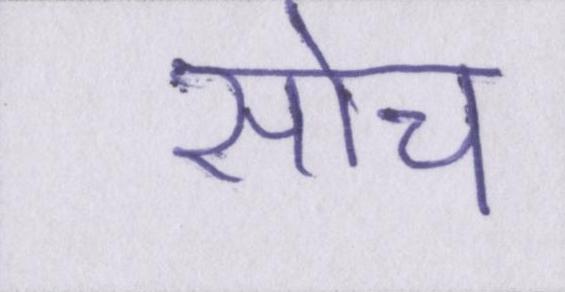 सोच